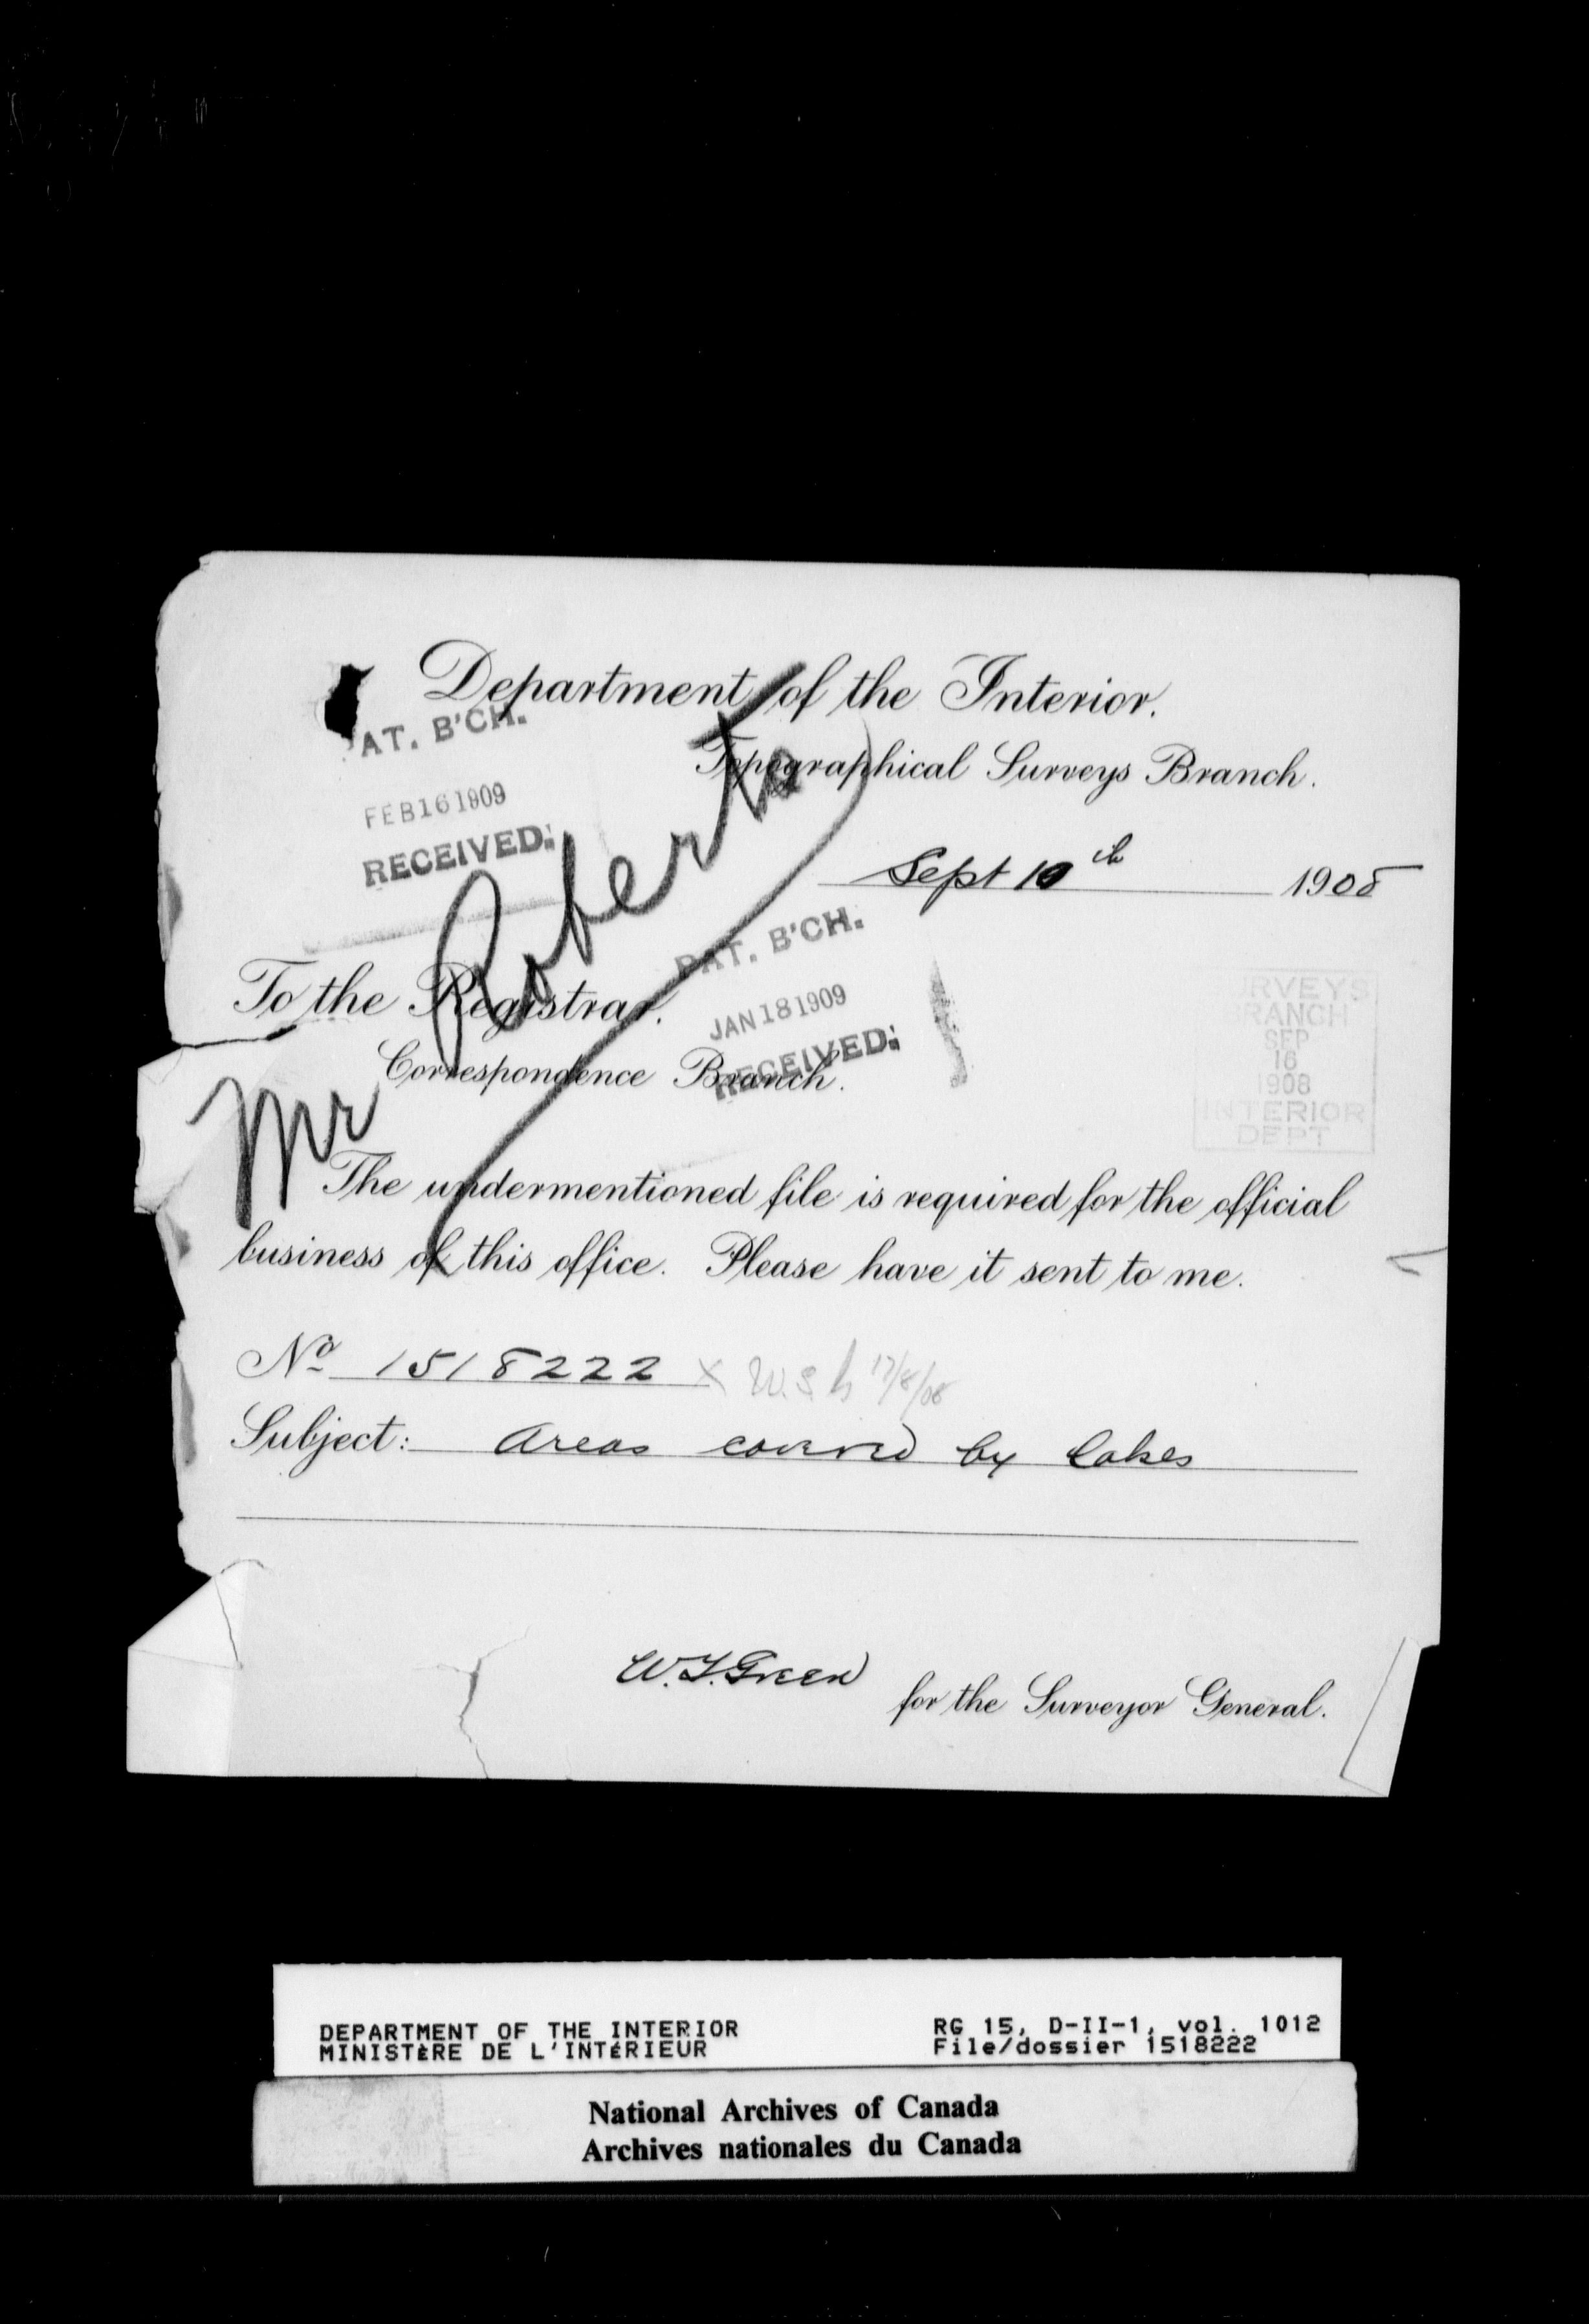 Department of the Interior.
Topographical Surveys Branch.
AT. B'CH.
FEB 16 1909
RECEIVED.
Sept 10th 1908
To the Registrar.
Correspondence Branch.
PAT. B'CH.
JAN 18 1909
RECEIVED.
URVEYS
BRANCH
SEP
16
1908
INTERIOR
DEPT
Mr Roberts
The undermentioned file is required for the official
business of this office. Please have it sent to me.
No 1518222 x W.S.h 17/8/08
Subject: Areas covered by lakes
W.T. Green
for the Surveyor General.
DEPARTMENT OF THE INTERIOR
MINISTÈRE DE L'INTÉRIEUR
RG 15, D-II-1, vol. 1012
File/dossier 1518222
National Archives of Canada
Archives nationales du Canada